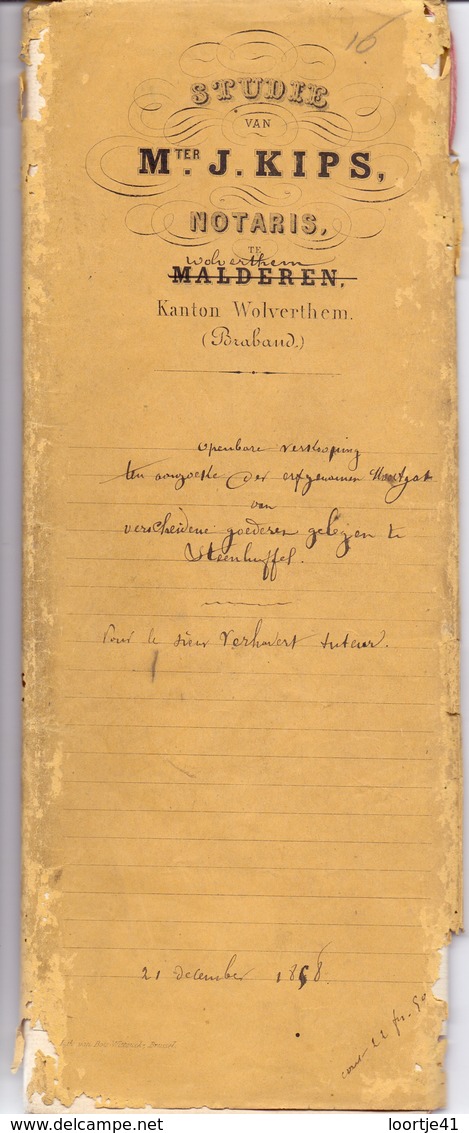 16
STUDIE
VAN
MTER. J. KIPS,
NOTARIS,
TE
Wolverthem
MALDEREN,
Kanton Wolverthem.
(Braband.)
openbare verkooping
ten aanzoeke der erfgenamen
van
verscheidene goederen gelegen te
Steenhuffel.
Pour le sieur Verhavert tuteur.
21 december 1868
22 fr. 50
Delcampe.net
loortje41